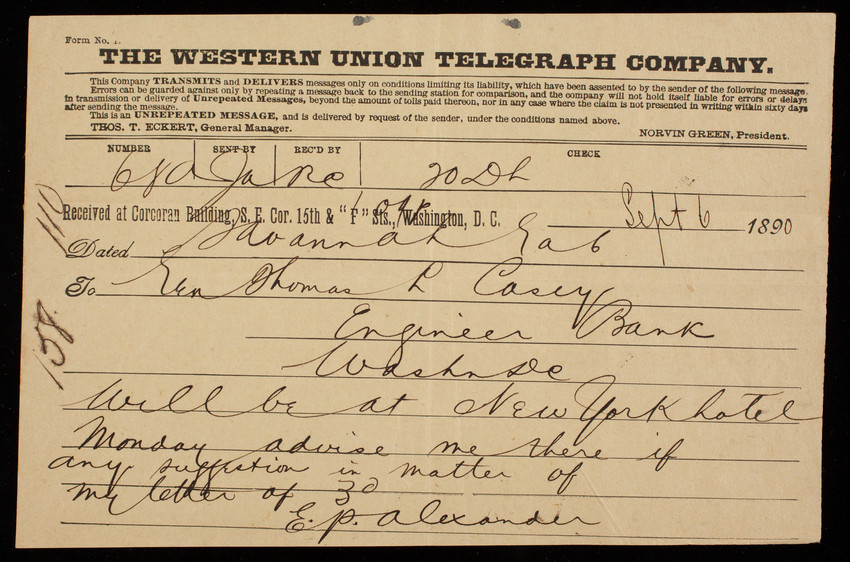 Form No. 1.
THE WESTERN UNION TELEGRAPH COMPANY.
This Company TRANSMITS and DELIVERS messages only on conditions limiting its liability, which have been assented to by the sender of the following message.
Errors can be guarded against only by repeating a message back to the sending station for comparison, and the company will not hold itself liable for errors or delays
in transmission or delivery of Unrepeated Messages, beyond the amount of tolls paid thereon, nor in any case where the claim is not presented in writing within sixty days
after sending the message.
This is an UNREPEATED MESSAGE, and is delivered by request of the sender, under the conditions named above.
THOS. T. ECKERT, General Manager. NORVIN GREEN, President.
NUMBER SENT BY REC'D BY CHECK
Ja 20 Dh
110
Received at Corcoran Building, S. E. Cor. 15th & "F" Sts., Washington, D. C. Sept 6 1890
Dated Savannah Ga 6
To Gen Thomas L Casey
Engineer Bank
Washn DC
158.
Will be at New York hotel
Monday advise me there if
any suggestion in matter of
my letter of 3d
E. P. Alexander